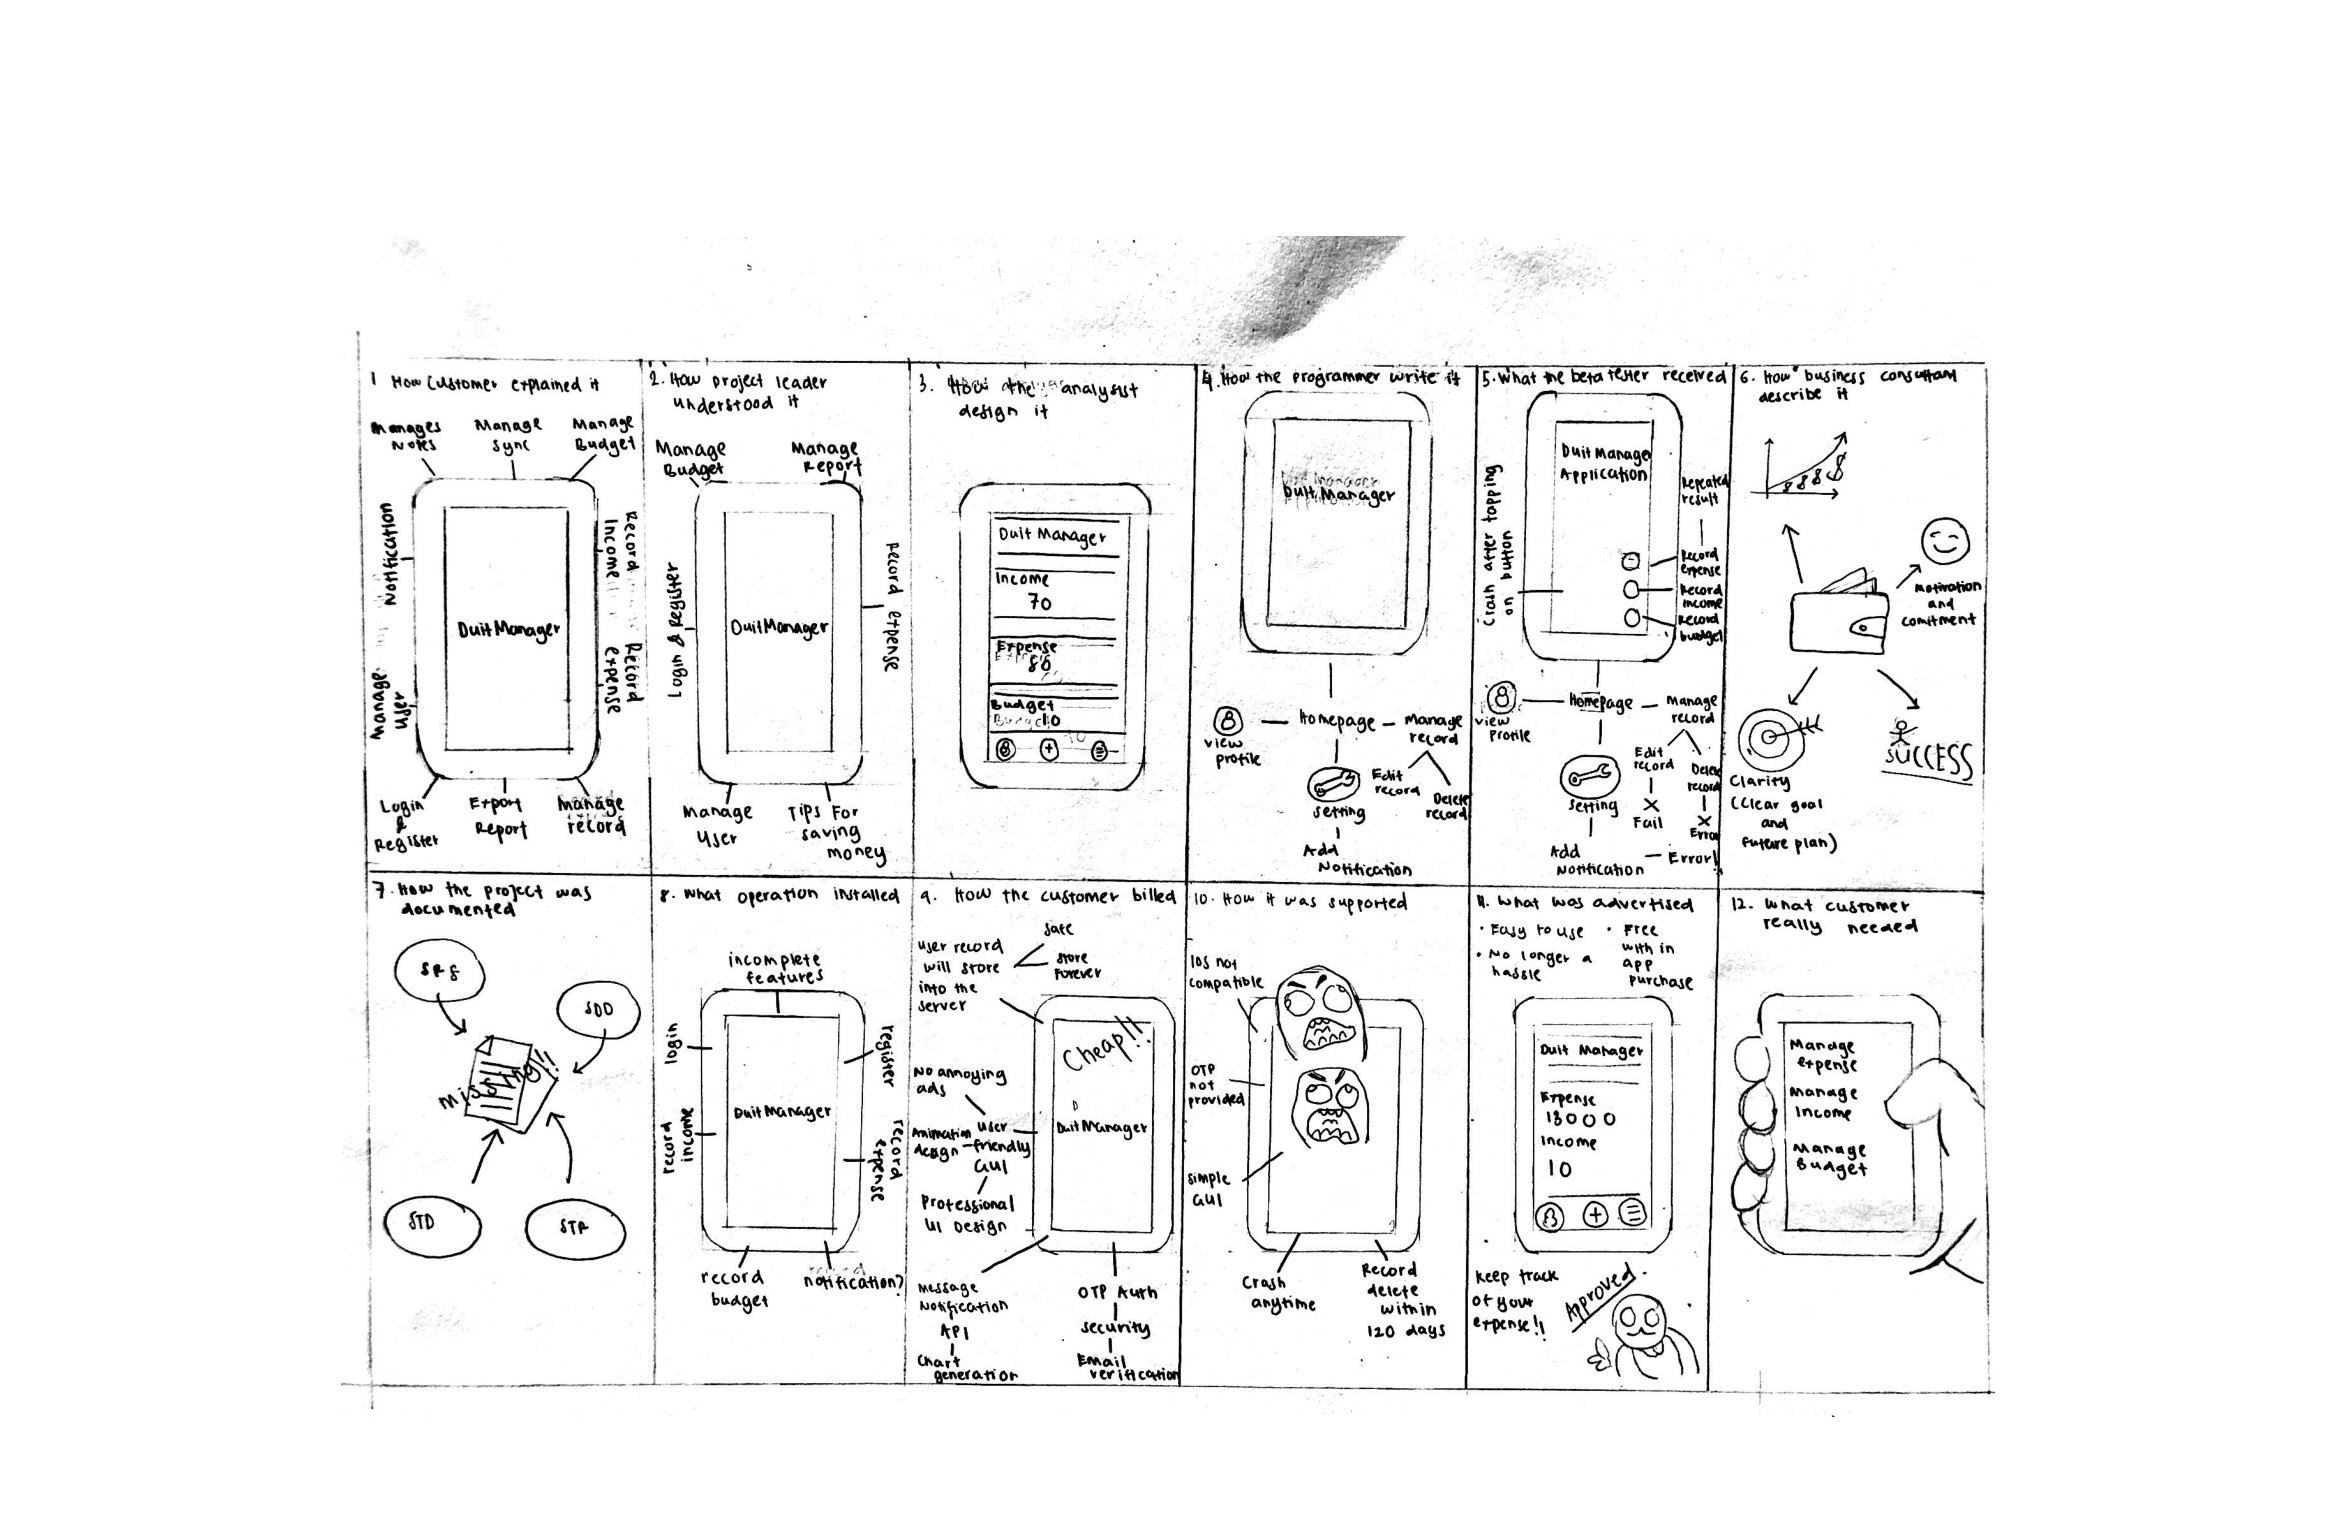 1 How Customer explained it
Manages
Notes
Manage
Sync
Manage
Budget
Notification
Record
Income
Manage
User
Record
expense
DuitManager
Login
&
Register
Export
Report
Manage
record
2. How project leader
understood it
Manage
Budget
Manage
Report
Login & Register
Record expense
DuitManager
Manage
User
Tips For
saving
money
3. How the analysist
design it
Duit Manager
Income
70
Expense
88
Budget
10
4. How the programmer write it
Duit Manager
Homepage
view
profile
Manage
record
Edit
record
Delete
record
setting
Add
Notification
5. What the beta tester received
Crash after tapping
on button
Duit Manager
Application
Repeated
result
Record
expense
Record
income
Record
budget
Homepage
view
profile
Manage
record
Edit
record
X
Fail
Delete
record
X
Error
setting
Add
Notification
Error!
6. How business consultant
describe it
$ $ $ $
Motivation
and
comitment
Clarity
(Clear goal
and
future plan)
SUCCESS
7. How the project was
documented
SRS
SDD
missing!!
STD
STR
8. What operation installed
incomplete
features
login
register
record
income
record
expense
DuitManager
record
budget
notification?
9. How the customer billed
user record
will store
into the
server
safe
store
forever
Cheap!!
DuitManager
No annoying
ads
Animation
design
user
friendly
GUI
Professional
UI Design
Message
Notification
API
Chart
generation
OTP Auth
security
Email
verification
10. How it was supported
IOS not
compatible
OTP
not
provided
simple
GUI
Crash
anytime
Record
delete
within
120 days
11. What was advertised
• Easy to use
• No longer a
hassle
• Free
with in
app
purchase
Duit Manager
Expense
13000
Income
10
keep track
of your
expense!!
Approved.
12. What customer
really needed
Manage
expense
Manage
Income
Manage
Budget